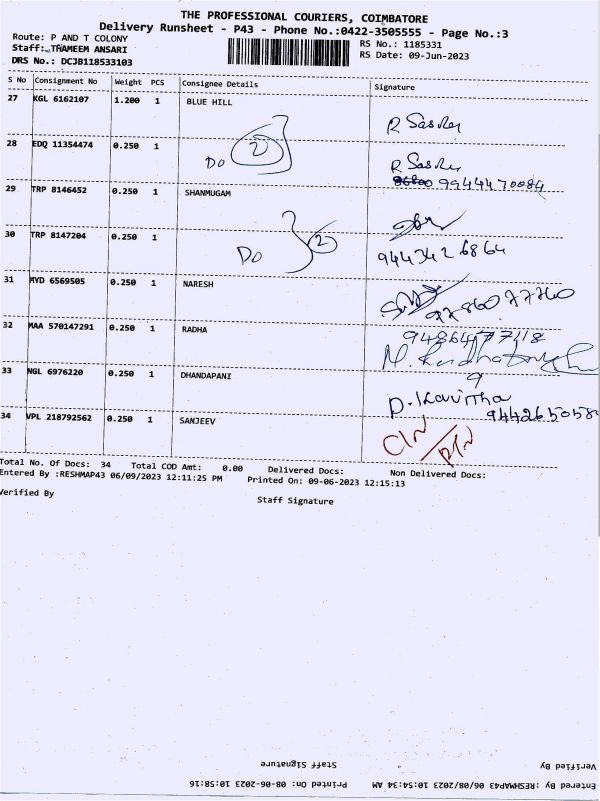 THE PROFESSIONAL COURIERS, COIMBATORE
Delivery Runsheet - P43 - Phone No.:0422-3505555 - Page No.:3
Route: P AND T COLONY
RS No.: 1185331
Staff: THAMEEM ANSARI
RS Date: 09-Jun-2023
DRS No.: DCJB118533103
S No Consignment No Weight PCS Consignee Details Signature
27 KGL 6162107 1.200 1 BLUE HILL
R Sasrey
28 EDQ 11354474 0.250 1
Do 2
R Sasrey
9944470084
29 TRP 8146452 0.250 1 SHANMUGAM
30 TRP 8147204 0.250 1
Do 2
9443426864
31 MYD 6569505 0.250 1 NARESH
9786077760
32 MAA 570147291 0.250 1 RADHA
33 NGL 6976220 0.250 1 DHANDAPANI
D. Kavitha
9442650584
34 VPL 218792562 0.250 1 SANJEEV
Total No. Of Docs: 34 Total COD Amt: 0.00 Delivered Docs: Non Delivered Docs:
Entered By :RESHMAP43 06/09/2023 12:11:25 PM Printed On: 09-06-2023 12:15:13
Verified By
Staff Signature
Staff Signature
Verified By
Entered By :RESHMAP43 06/08/2023 10:54:34 AM Printed On: 08-06-2023 10:58:16